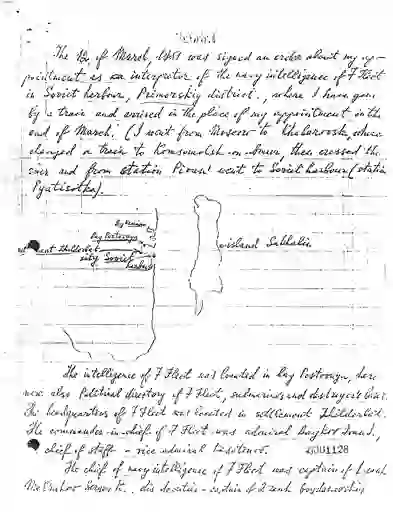 The 12, of March, 1951 was signed an order about my ap-
pointment as an interpretor of the navy intelligence of 7 Fleet
in Soviet harbour, Primorskiy district., where I have gone
by a train and arrived in the place of my appointment in the
end of March. (I went from Moscow to Khabarovsk, where
changed a train to Komsomolsk-on-Amur, then crossed the
river and from station Pivan went to Soviet harbour (station
Pyatisotka).
bay
bay Postovaya
city Soviet
harbour
island Sakhalin
The intelligence of 7 Fleet was located in bay Postovaya, here
were also Political directory of 7 Fleet, submarines and destroyers base.
The headquarters of 7 Fleet was located in settlement
The commander-in-chief of 7 Fleet was admiral
chief of staff - vice admiral
1128
The chief of navy intelligence of 7 Fleet was captain of 1 rank
his - captain of 2 rank